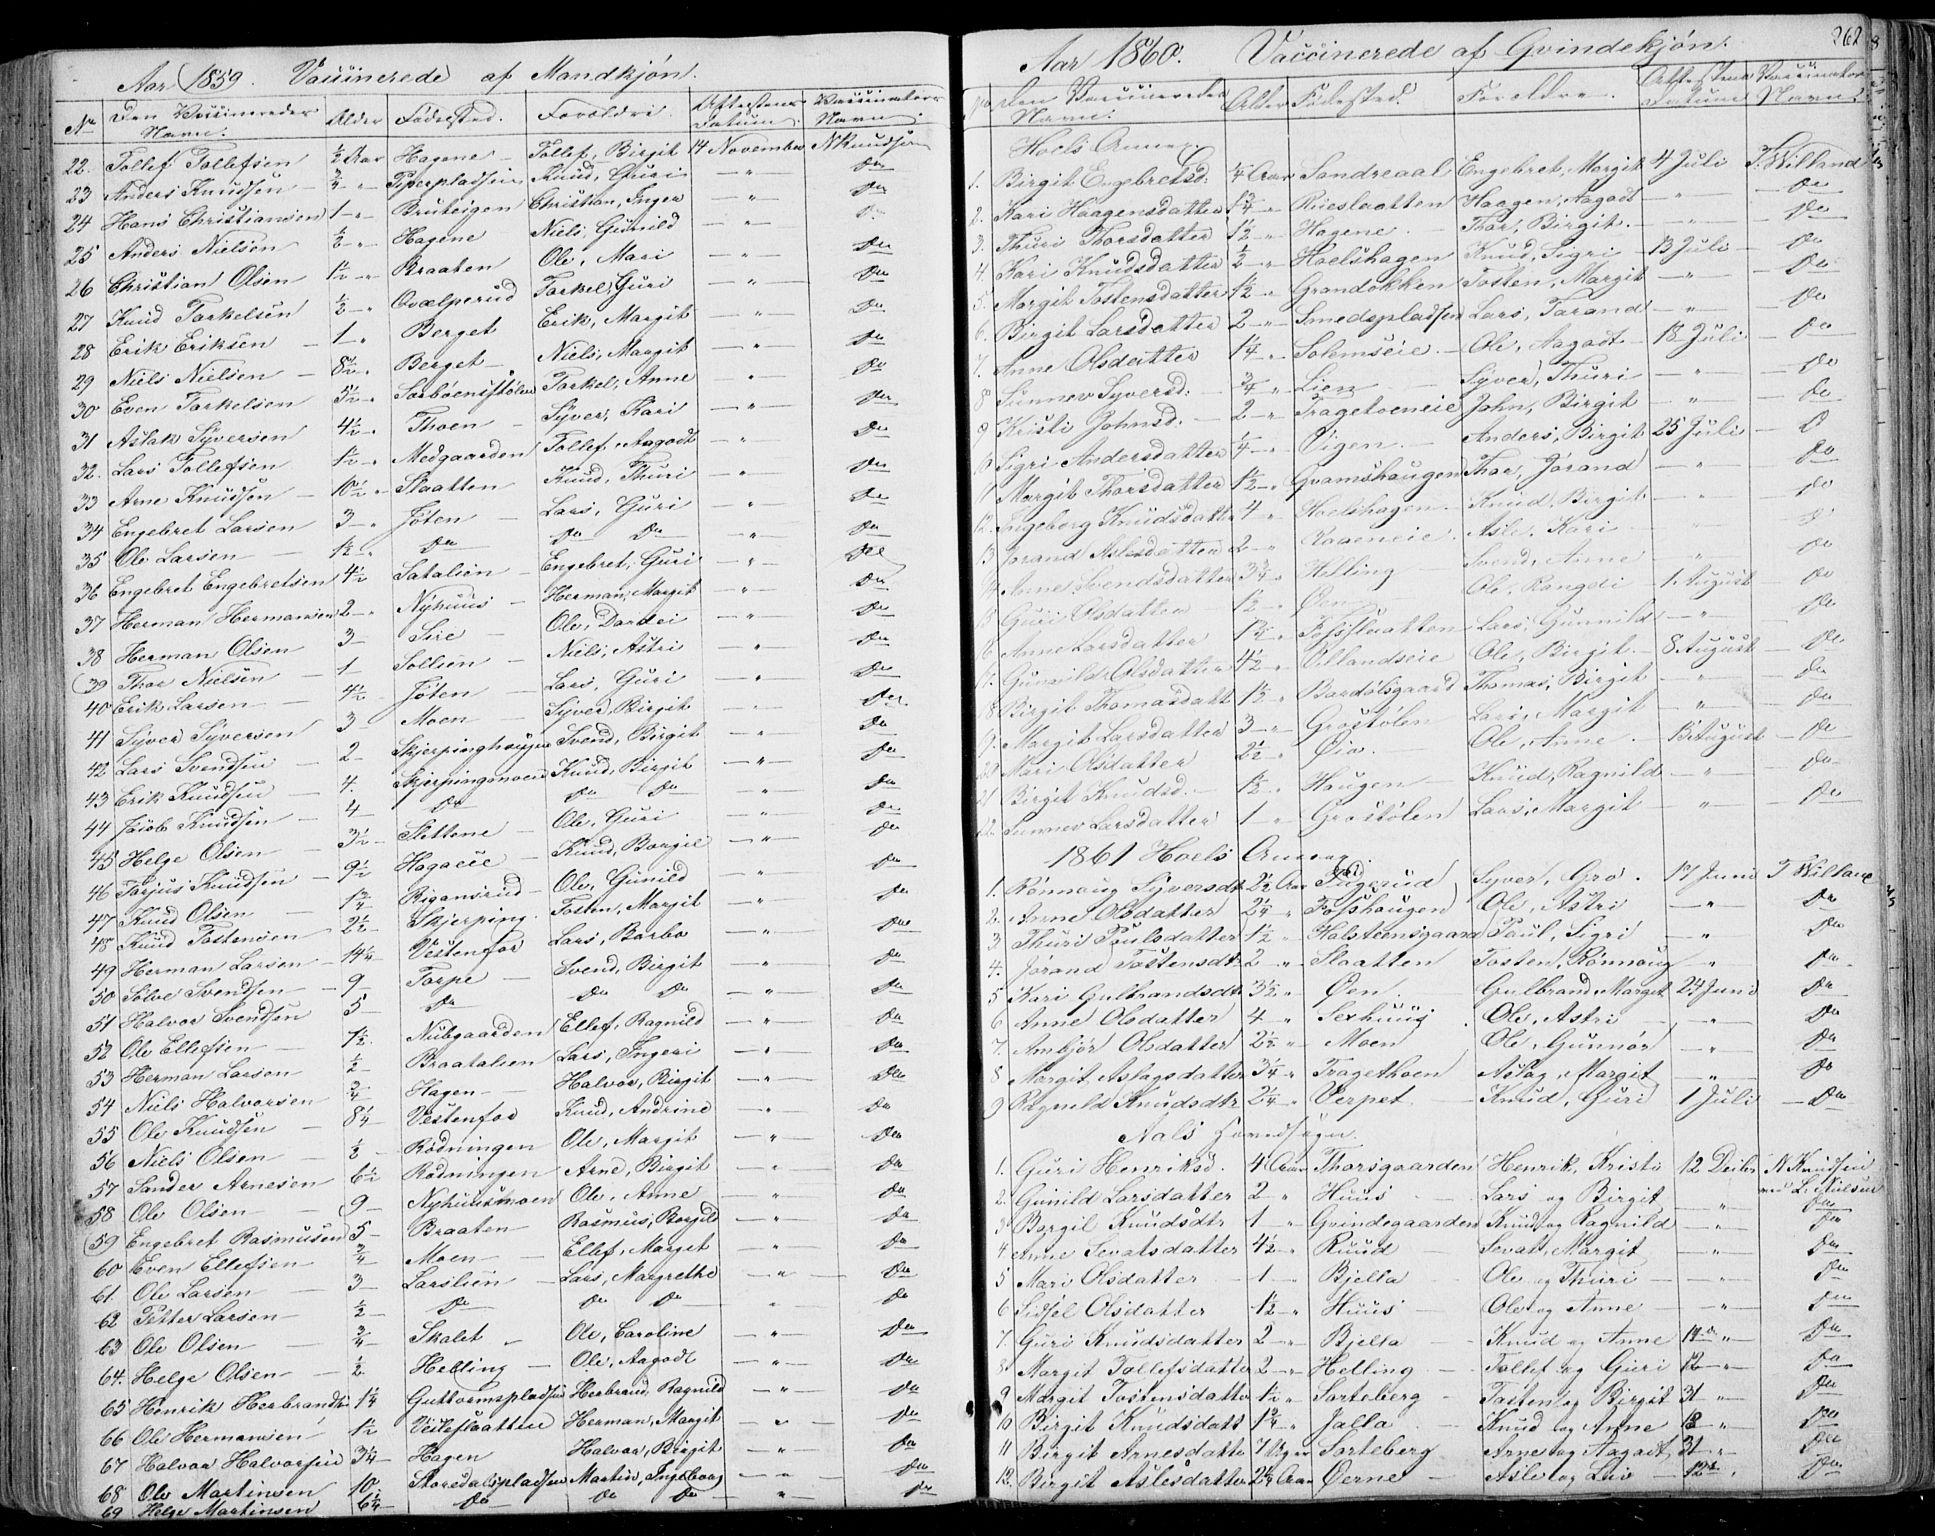 Aar 1859. Vaccinerede af Mandkjøn.
No Den Vaccineredes Navn. Alder Fødested. Forældre. Attestens Datum. Vaccinators Navn.
22. Tollef Tollefsen ½ Aar Hagene Tollef, Birgit 14 November N Knudsen
23 Anders Knudsen ¾ " Piperpladsen Knud, Guri — " — Do
24 Hans Christiansen 1 - " Bruteigen Christian, Inger — " — Do
25 Anders Nielsen ½ - " Hagene Niels, Gunild — " — Do
26 Christian Olsen 1½ - " Braaten Ole, Mari — " — Do
27 Knud Torkelsen ½ - " Qvælperud Torkel, Guri — " — Do
28 Erik Eriksen — 1 - " Berget Erik, Margit — " — Do
29 Niels Nielsen — 8½ " Berget Niels, Margit — " — Do
30 Even Torkelsen 5½ - " Torkel, Anne — " — Do
31 Aslak Syversen 4½ - " Thoen — Syver, Kari — " — Do
32. Lars Tollefsen 1½ - " Medgaarden Tollef, Aagodt — " — Do
33 Arne Knudsen — 10½ " Slaatten Knud, Thuri — " — Do
34 Engebret Larsen 3 - " Jøten — Lars, Guri — " — Do
35 Ole Larsen — 1½ " Do Do Do — " — Do
36 Engebret Engebretsen 4½ Satalien — Engebret, Guri — " — Do
37 Herman Hermansen 2 - " Nyhuus — Herman, Margit — " — Do
38 Herman Olsen 3 — Sire — Ole, Dordei — " — Do
39 Thor Nielsen — 1 Sollien — Niels, Astri — " — Do
40 Erik Larsen — 4½ - Jøten — Lars, Guri — " — Do
41 Syver Syversen 3 Moen — Syver, Birgit — " — Do
42 Lars Svendsen 2 - Skjerpinghougen Svend, Birgit — " — Do
43 Erik Knudsen — 4. Skjerpingmoen Knud, Birgit — " — Do
44 Jacob Knudsen — 4 — Do Do Do — " — Do
45 Helge Olsen — 3½ - Slettene — Ole, Guri — " — Do
46 Tarjus Knudsen — 9½ Hagaeie — Knud, Borgil — " — Do
47 Knud Olsen — 1¾ Rigansrud — Ole, Gunild — " — Do
48 Knud Tostensen 2½ - Skjerping. Tosten, Margit — " — Do
49 Herman Larsen — 14¼ Vestenfor Lars, Barbo — " — Do
50 Solve Svendsen — 9 — Torpe — Svend, Birgit — " — Do
51 Halvor Svendsen 5 — Do Do Do — " — Do
52 Ole Ellefsen — 7½. Nubgaarden Ellef, Ragnild — " — Do
53 Herman Larsen ½ — Braatalien Lars, Ingeri — " — Do
54 Niels Halvorsen ¾ Hagen — Halvor, Birgit — " — Do
55 Ole Knudsen — 8¼ Vestenfor Knud, Andrine — " — Do
56 Niels Olsen — ½ Rødningen Ole, Margit — " — Do
57 Sander Arnesen 6½ Rødningen Arne, Birgit — " — Do
58 Ole Olsen — 9 — Nyhuusmoen Ole, Anne — " — Do
59 Engebret Rasmusen 5 — Braaten — Rasmus, Borgild — " — Do
60 Even Ellefsen ¾ Moen — Ellef, Margit — " — Do
61. Ole Larsen — 3 — Larslien — Lars, Margrethe — " — Do
62 Petter Larsen — ½ — Do Do Do " Do
63 Ole Olsen — ¾ Skalet — Ole, Caroline — " — Do
64. Helge Olsen — ½ Helling — Ole, Aagodt — " — Do
65 Henrik Herbrandsen 1¼ Guttormspladsen Herbrand, Ragnild — " — Do
66 Ole Hermansen 1½ Herman, Margit — " — Do
67 Halvor Halvorsen 3¼ — Hagen Halvor, Birgit — " — Do
68 Ole Martinsen 10 Martin, Ingeborg — " — Do
69 Helge Martinsen 6¼ — Do Do Do — " — Do
262
Aar 1860. Vaccinerede af Qvindekjøn.
No Den Vaccineredes Navn. Alder Fødested. Forældre. Attestens Datum Vaccinators Navn.
Hoels Annex
1. Birgit Engebretsd: ¼ Aar Sandreaal Engebret, Margit 4 Juli T. Willand
2. Kari Haagensdatter 1¾ " Rueslaatten Haagen, Aagodt — " — Do
3. Thuri Thorsdatter 1½ " Hagene — Thor, Birgit. — " — Do
4 Kari Knudsdatter ½ - " Hoelshagen Knud, Sigri — 13 Juli — Do
5. Margit Tostensdatter 1½ " Grandokken Tosten, Margit — " — Do
6. Birgit Larsdatter 2 - " Smedspladsen Lars, Tarand — " — Do
7. Anne Olsdatter 1¼ " Solemseie — Ole, Aagodt — 18 Juli — Do
8 Sunnev Syversd: ¾ " Lien Syver, Thuri — " — Do
9 Kristi Johnsd: — 2 - " Tragetoeneie John, Birgit — " — Do
10 Sigri Andersdatter ¼ - " Øigen — Anders, Birgit 25 Juli — Do
11 Margit Thorsdatter 1½ - " Qvamshaugen Thor, Jorand — " — Do
12. Ingeborg Knudsdatter 4 - " Hoelshagen — Knud, Birgit — " — Do
13 Jorand Aslesdatter 2 - " Raaeneie Asle, Kari
14 Anne Svendsdatter 3¾ " Helling — Svend, Anne " Do
15 Guri Olsdatter 1½ " Øen — Ole, Rangdi — 1. August — Do
16 Anne Larsdatter 1½ - " Fossslaatten Lars, Gunnild — " — Do
17. Gunnild Olsdatter 4½ " Villandseie Ole, Birgit. — 8 August — Do
18 Birgit Thomasdatt 1½ " Bardolsgaard Thomas, Birgit — " — Do
19. Margit Larsdatter 3 - " Grostølen Lars, Margit " Do
20 Mari Olsdatter 2½ " Øio — Ole, Anne. 13 August — Do
21 Birgit Knudsd. — 1½ - " Haugen Knud, Ragnild — " — Do
22. Sunnev Larsdatter 1 " Grostølen Lars, Margit — " — Do
1861 Hoels Annex
1. Rønnoug Syversdt 2½ Aar Syver, Gro. 17 Juni T Willand
2. Anne Olsdatter 2¼ " Fosshougen Ole, Astri — " — Do
3 Thuri Poulsdatter 1½ " Halsteensgaard Paul, Sigri " Do
4. Jorand Tostensdt 2 — " Slaatten Tosten, Rønnoug " Do
5 Kari Gulbrandsdt 3½ " Øen Gulbrand, Margit 24 Juni Do
6 Anne Olsdatter 4 " Sexhuug Ole, Astri — " — Do
7. Ambjør Olsdatter 2½ " Moen Ole, Gunnor — " Do
8 Margit Aslagsdatter 3¼ " Tragethoen Aslag, Margit " Do
9 Ragnild Knudsdtr 2¼ " Verpet. — Knud, Guri 1 Juli — Do
Aals Hovedsogn.
1. Guri Henriksd. 4 Aar Thorsgaarden Henrik, Kristi 12. Decbr N Knudsen
2. Gunild Larsdatter 2 — " Huus — Lars og Birgit " ved L. Nielsen Do
3 Borgil Knudsdtr 1 — " Qvindegaarden Knud og Ragnild — " — Do
4 Anne Sevatsdatter 4½ - " Ruud — Sevat, Margit " Do
5 Mari Olsdatter — 1 - " Bjella Ole og Thuri — " Do
6 Sidsel Olsdatter 1½ " Huus — Ole og Anne — " Do
7. Guri Knudsdatter 2 — " Bjella — Knud og Anne 14 " Do
8. Margit Tollefsdatter 2 — " Helling — Tollef og Guri 12 — " Do
9 Margit Tostensdatter 1½ " Sorteberg — Tosten og Birgit 31 " Do
10 Birgit Knudsdatt 1¾ " Jalla — Knud og Anne 18 " Do
11 Birgit Arnesdatter 7 Uger Sorteberg Arne og Aagodt 31 " Do
12. Birgit Aslesdatter 2¼ Aar Øerne — Asle og Liv 12 " Do